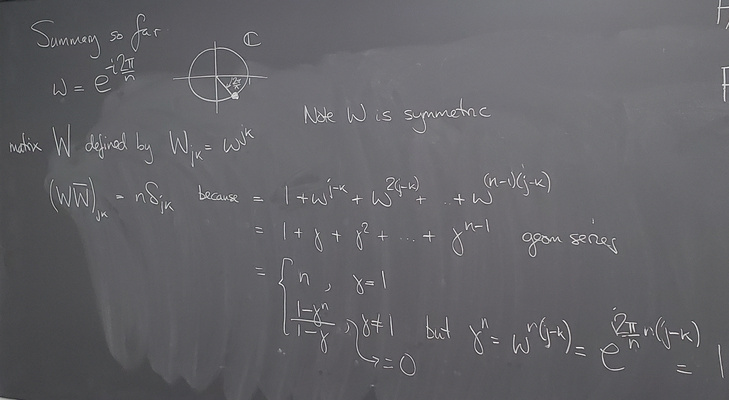 Summary so far
ℂ
ω = e^{-i 2π/n}
2π/n
Note W is symmetric
matrix W defined by W_{jk} = ω^{jk}
(W W̅)_{jk} = nδ_{jk} because = 1 + ω^{j-k} + ω^{2(j-k)} + ... + ω^{(n-1)(j-k)}
= 1 + γ + γ² + ... + γ^{n-1} geom series
= { n , γ=1
(1-γⁿ)/(1-γ) , γ≠1 but γⁿ = ω^{n(j-k)} = e^{-i 2π/n n(j-k)} = 1
→ = 0